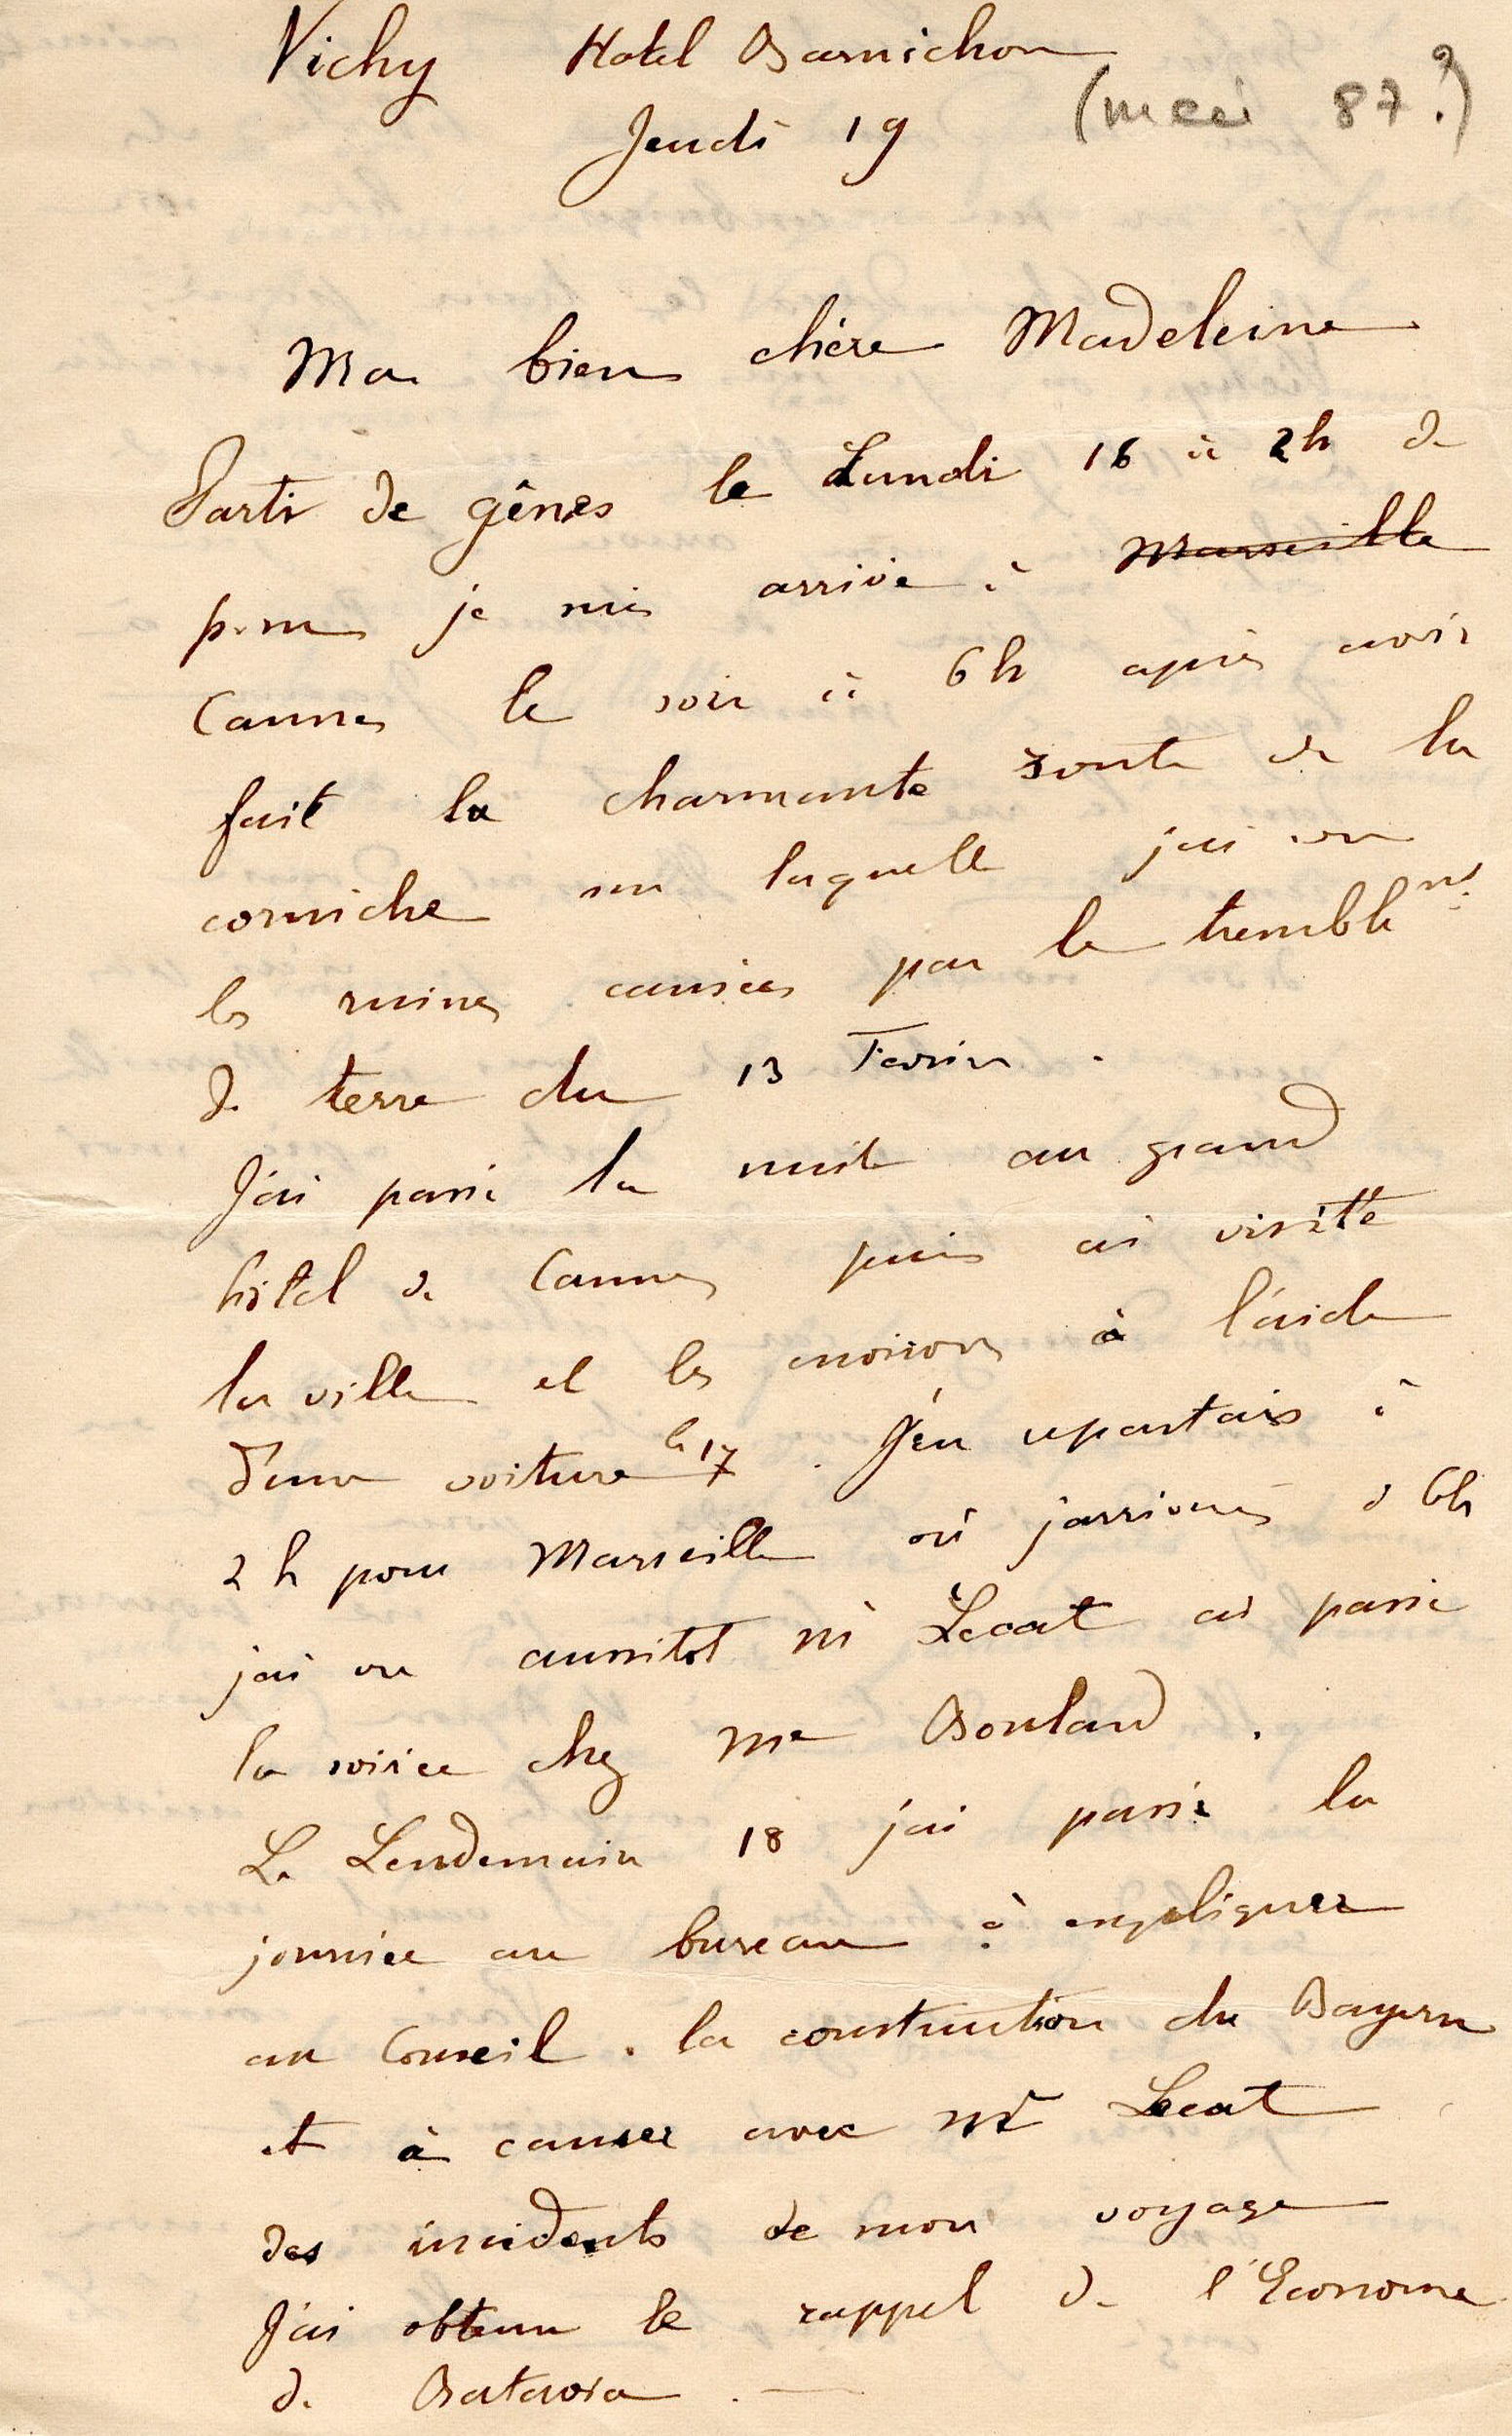 Vichy Hotel Barnichon
Jeudi 19 (mai 87?)
Ma bien chère Madeleine
Parti de gênes le Lundi 16 à 2h de
pour je suis arrivé à Marseille
Cannes le soir à 6h après avoir
fait la charmante route de la
corniche sur laquelle j'ai vu
les ruines causées par le tremblemt
de terre du 13 Fevrier.
J'ai passé la nuit au grand
hôtel de Cannes puis ai visité
la ville et les environs à l'aide
d'une voiture le 17. J'en repartais à
2h pour Marseille où j'arrivais à 6h
j'ai vu aussitot Mr Lecat ai passé
la soirée chez Me Bouland.
Le Lendemain 18 j'ai passé la
journée au bureau à expliquer
au Conseil. la construction du Bayern
et à causer avec Mr Lecat
des incidents de mon voyage
J'ai obtenu le rappel de l'Econome
de Batavia. —